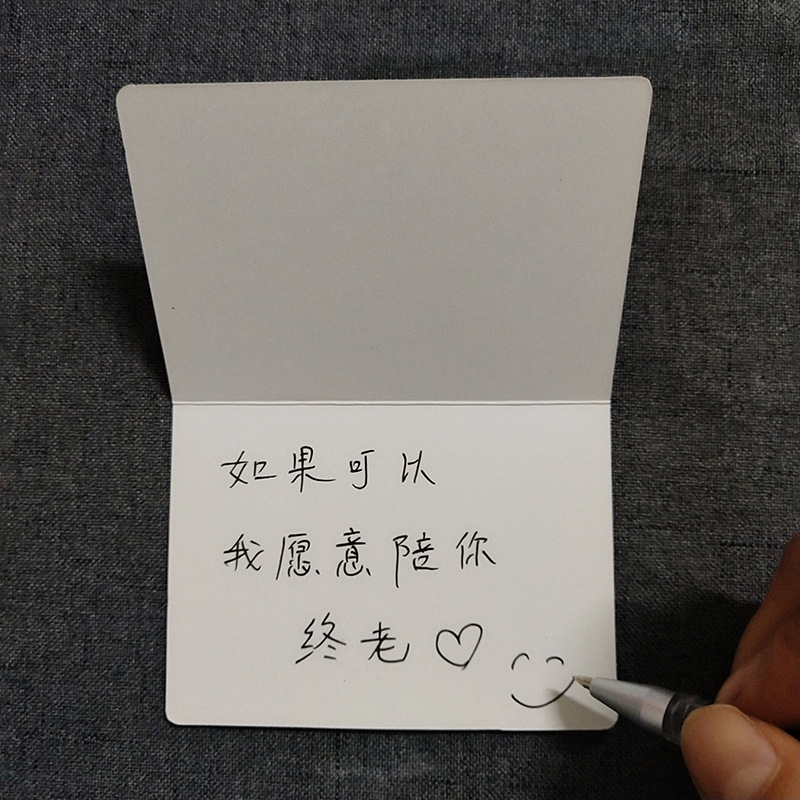 如果可以
我愿意陪你
终老♡